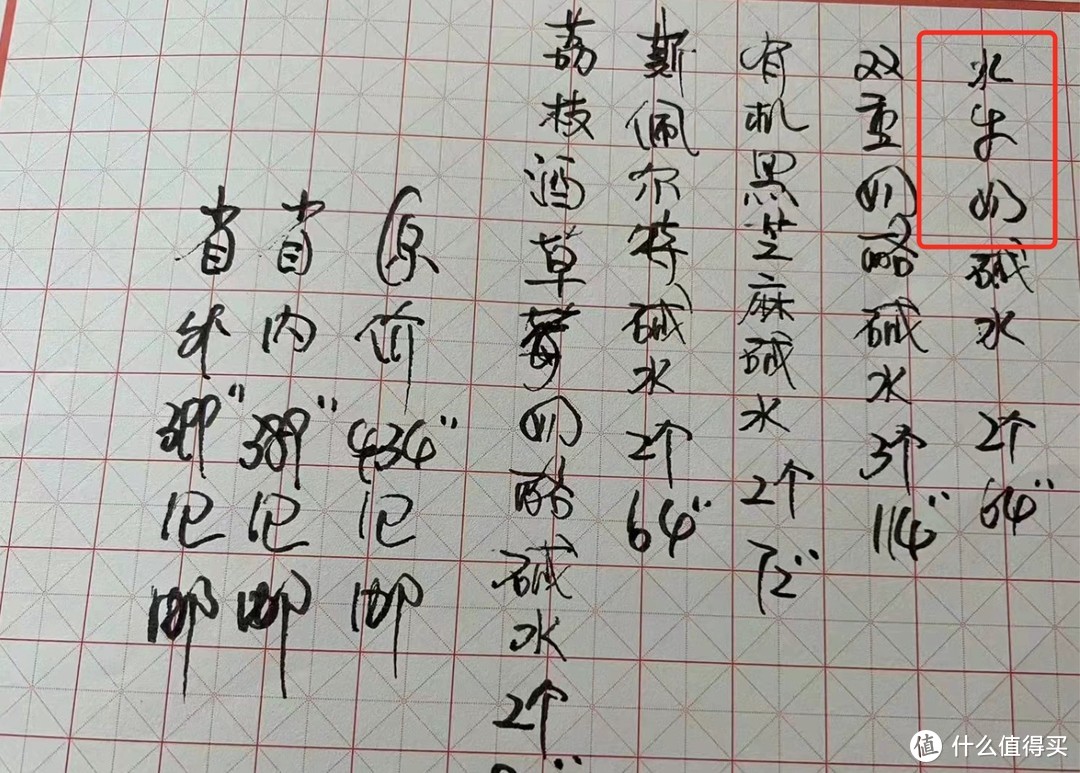 水牛奶碱水 2个 64"
双重奶酪碱水 3个 114"
有机黑芝麻碱水 2个 72"
斯佩尔特碱水 2个 64"
荔枝酒草莓奶酪碱水 2个
原价 434" 包邮
省内 389" 包邮
省外 399" 包邮
值 什么值得买